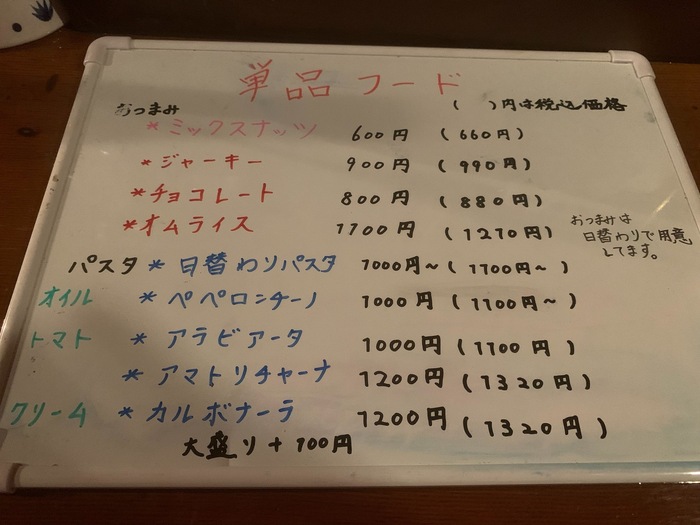 単品フード
おつまみ ( )円は税込価格
*ミックスナッツ 600円 (660円)
*ジャーキー 900円 (990円)
*チョコレート 800円 (880円)
*オムライス 1100円 (1210円)
おつまみは
日替わりで用意
してます。
パスタ *日替わりパスタ 1000円~(1100円~)
オイル *ペペロンチーノ 1000円(1100円~)
トマト *アラビアータ 1000円(1100円)
*アマトリチャーナ 1200円(1320円)
クリーム *カルボナーラ 1200円(1320円)
大盛り+100円